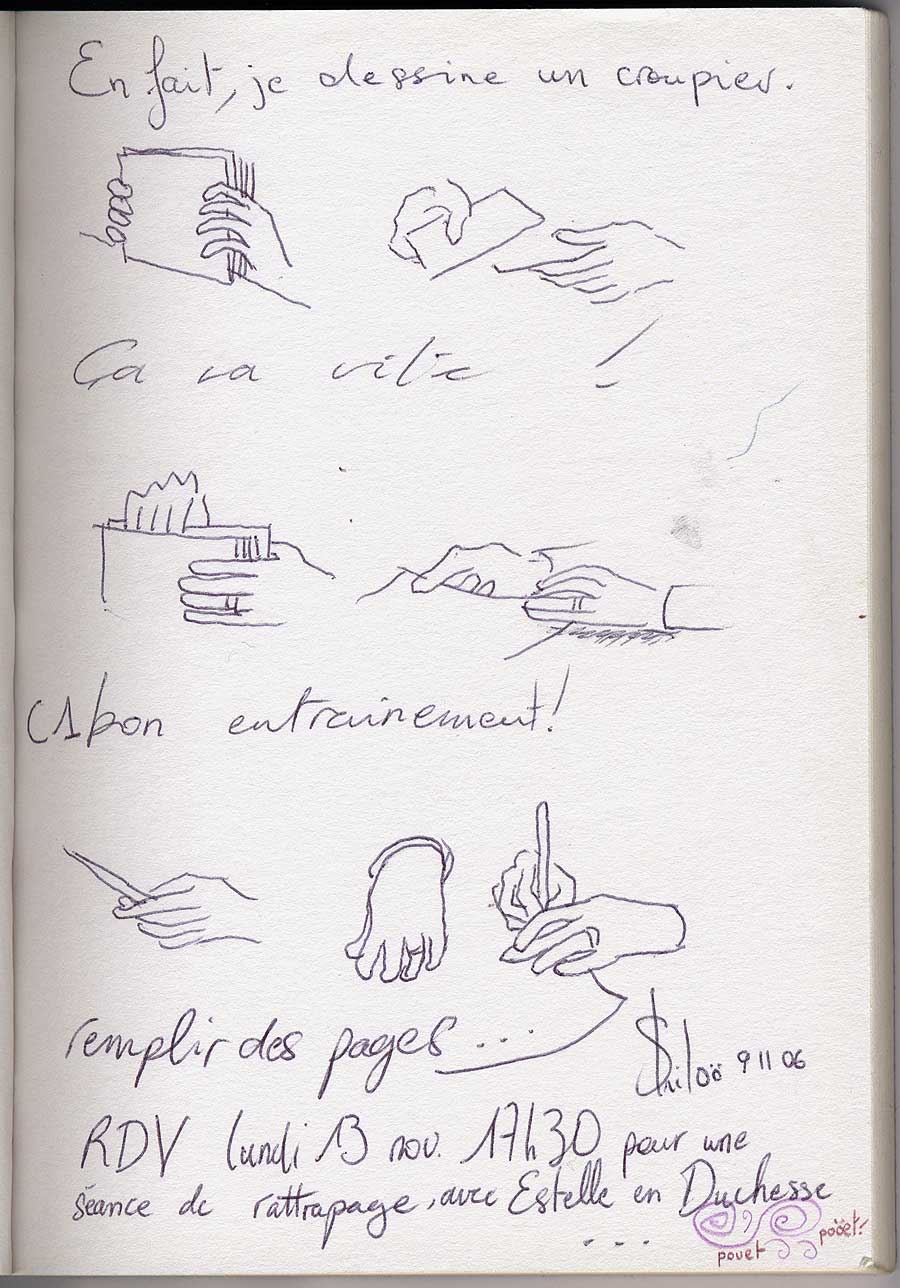 En fait, je dessine un croupier.
Ça va vite !
C1bon entrainement!
remplir des pages ...
Philoö 9 11 06
RDV lundi 13 nov. 17h30 pour une
séance de rattrapage, avec Estelle en Duchesse
...
pouet
pööet!